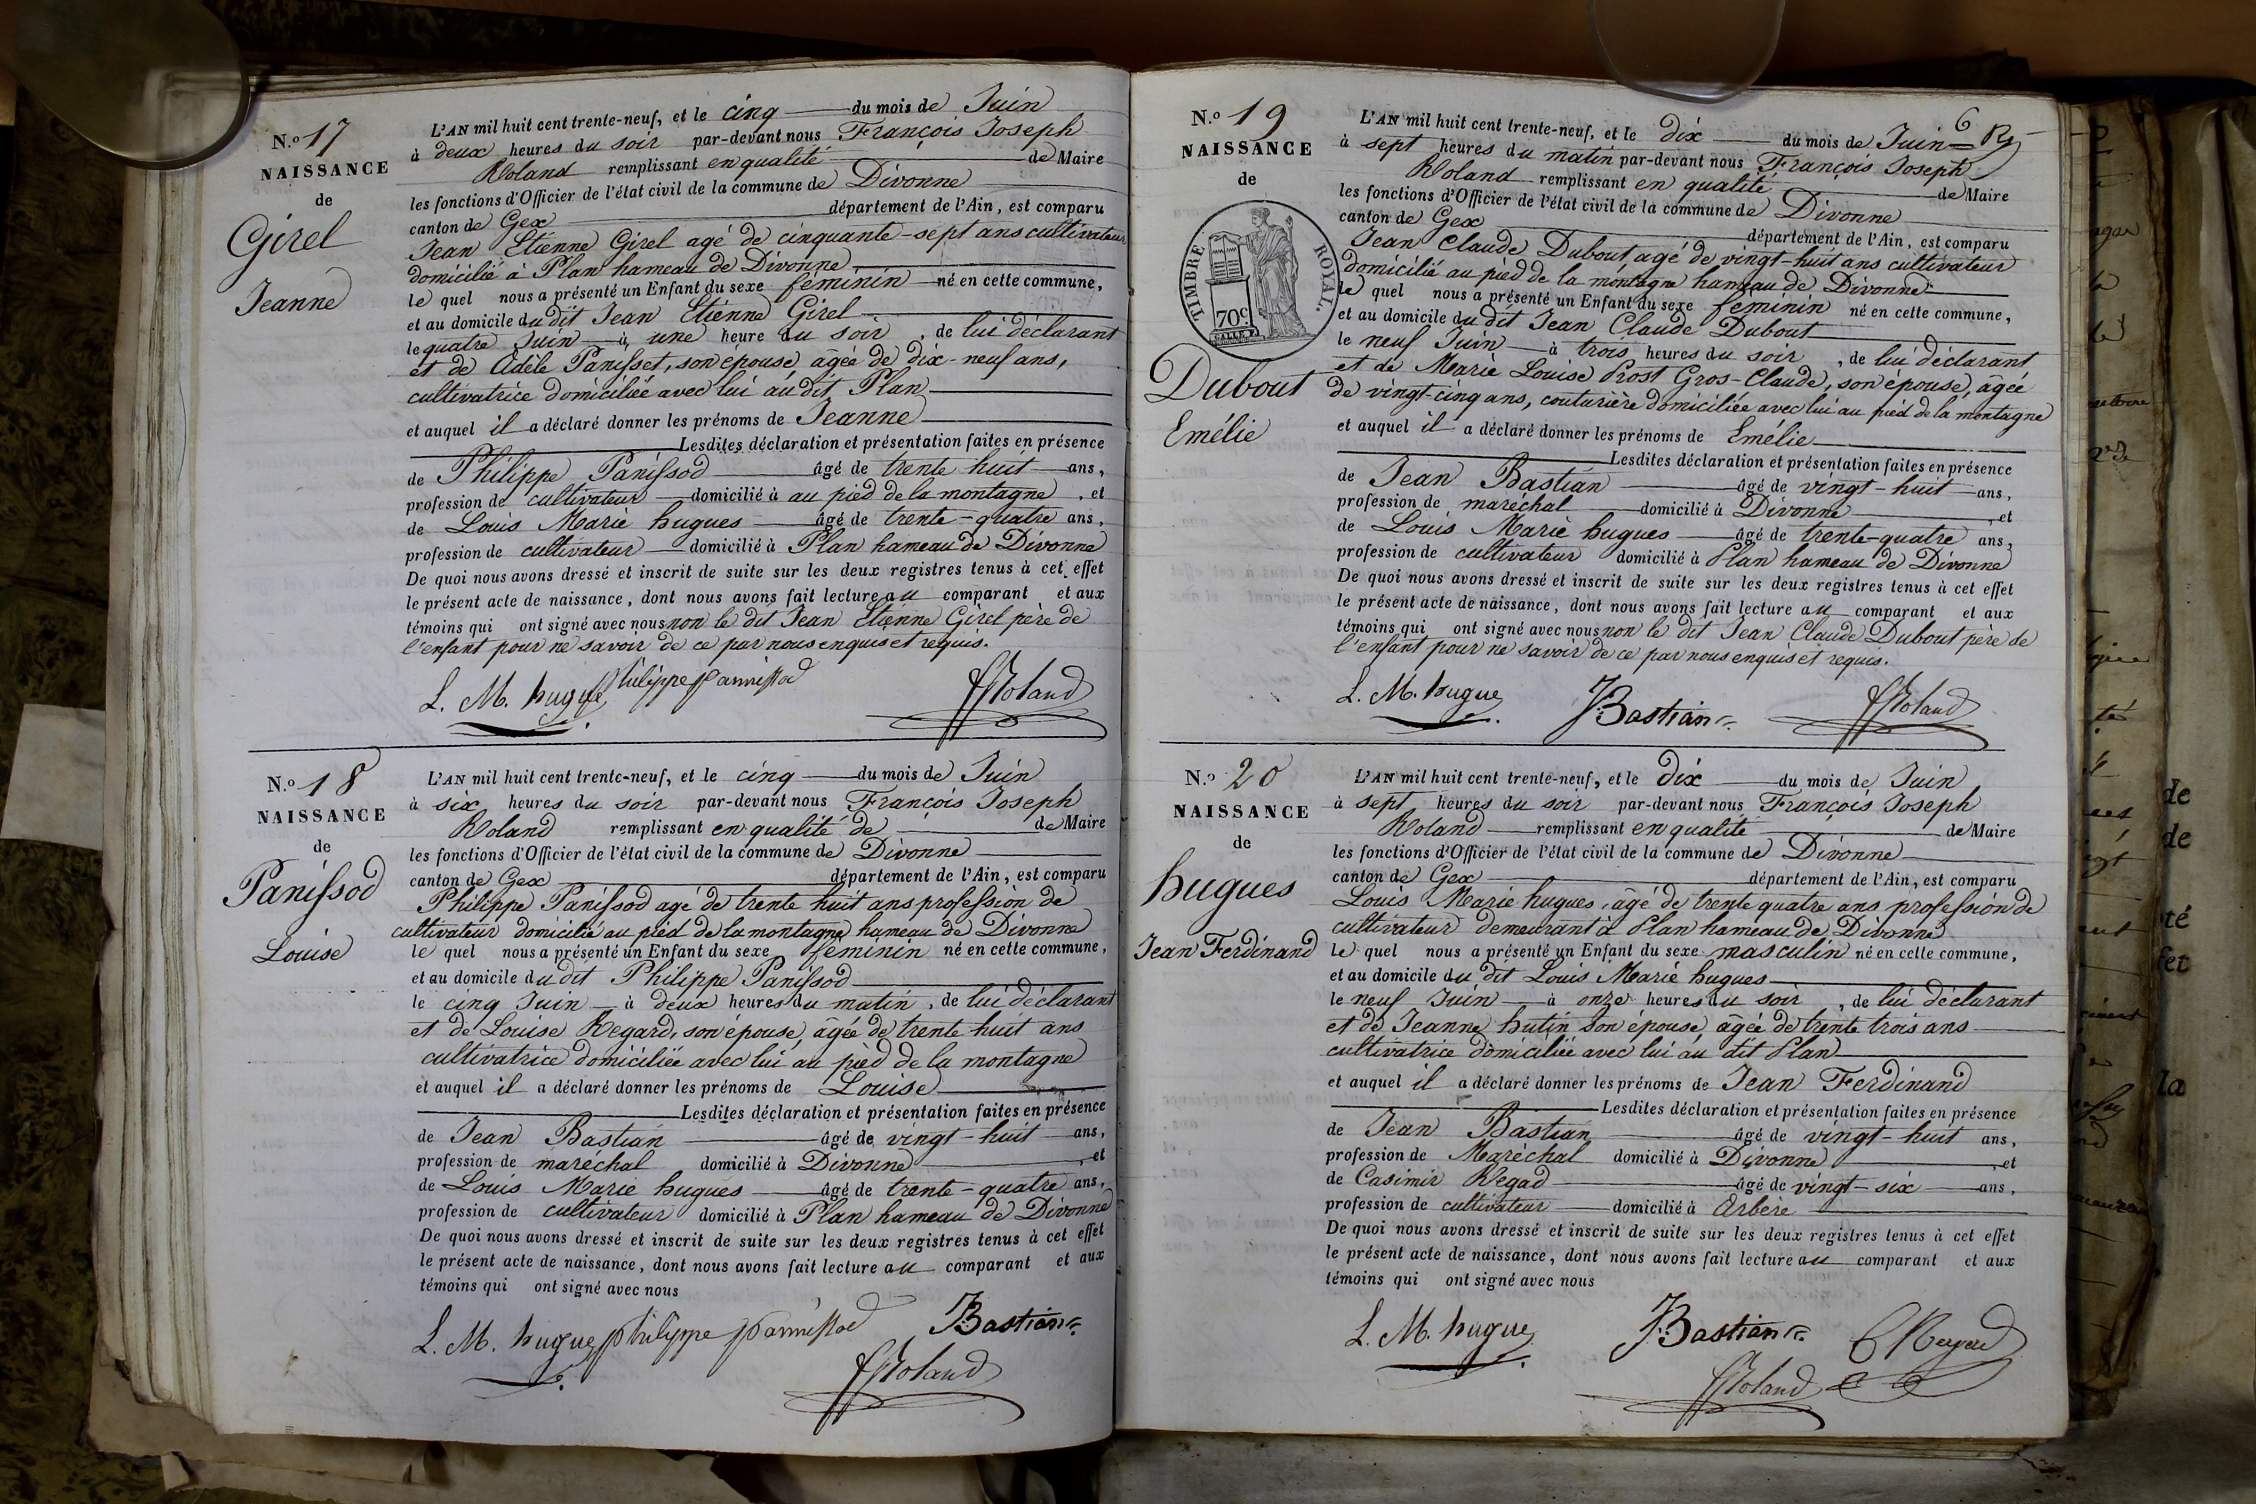 N.o 17
NAISSANCE
de
Girel
Jeanne
L'AN mil huit cent trente-neuf, et le cinq du mois de Juin
à deux heures du soir par-devant nous François Joseph
Roland remplissant en qualité de Maire
les fonctions d'Officier de l'état civil de la commune de Divonne
canton de Gex département de l'Ain, est comparu
Jean Etienne Girel agé de cinquante-sept ans cultivateur
domicilié à Plan hameau de Divonne
le quel nous a présenté un Enfant du sexe féminin né en cette commune,
et au domicile du dit Jean Etienne Girel
le quatre Juin à une heure du soir, de lui déclarant
et de Adèle Panisset, son épouse, agée de dix-neuf ans,
cultivatrice domiciliée avec lui au dit Plan
et auquel il a déclaré donner les prénoms de Jeanne
Lesdites déclaration et présentation faites en présence
de Philippe Panissod âgé de trente huit ans,
profession de cultivateur domicilié à au pied de la montagne, et
de Louis Marie hugues âgé de trente-quatre ans,
profession de cultivateur domicilié à Plan hameau de Divonne
De quoi nous avons dressé et inscrit de suite sur les deux registres tenus à cet effet
le présent acte de naissance, dont nous avons fait lecture au comparant et aux
témoins qui ont signé avec nous non le dit Jean Etienne Girel père de
l'enfant pour ne savoir de ce par nous enquis et requis.
L. M. hugue Philippe pannissod JRoland
N.o 18
NAISSANCE
de
Panissod
Louise
L'AN mil huit cent trente-neuf, et le cinq du mois de Juin
à six heures du soir par-devant nous François Joseph
Roland remplissant en qualité de de Maire
les fonctions d'Officier de l'état civil de la commune de Divonne
canton de Gex département de l'Ain, est comparu
Philippe Panissod agé de trente huit ans profession de
cultivateur domicilié au pied de la montagne hameau de Divonne
le quel nous a présenté un Enfant du sexe féminin né en cette commune,
et au domicile du dit Philippe Panissod
le cinq Juin à deux heures du matin, de lui déclarant
et de Louise Regard, son épouse, âgée de trente huit ans
cultivatrice domiciliée avec lui au pied de la montagne
et auquel il a déclaré donner les prénoms de Louise
Lesdites déclaration et présentation faites en présence
de Jean Bastian âgé de vingt-huit ans,
profession de maréchal domicilié à Divonne, et
de Louis Marie hugues âgé de trente-quatre ans,
profession de cultivateur domicilié à Plan hameau de Divonne
De quoi nous avons dressé et inscrit de suite sur les deux registres tenus à cet effet
le présent acte de naissance, dont nous avons fait lecture au comparant et aux
témoins qui ont signé avec nous
L. M. hugue philippe pannissod JBastian
JRoland
N.o 19
NAISSANCE
de
TIMBRE ROYAL.
70c
Dubout
Emélie
6
L'AN mil huit cent trente-neuf, et le dix du mois de Juin
à sept heures du matin par-devant nous François Joseph
Roland remplissant en qualité de Maire
les fonctions d'Officier de l'état civil de la commune de Divonne
canton de Gex département de l'Ain, est comparu
Jean Claude Dubout agé de vingt-huit ans cultivateur
domicilié au pied de la montagne hameau de Divonne
le quel nous a présenté un Enfant du sexe féminin né en cette commune,
et au domicile du dit Jean Claude Dubout
le neuf Juin à trois heures du soir, de lui déclarant
et de Marie Louise Prost Gros-Claude, son épouse, âgée
de vingt-cinq ans, couturière domiciliée avec lui au pied de la montagne
et auquel il a déclaré donner les prénoms de Emélie
Lesdites déclaration et présentation faites en présence
de Jean Bastian âgé de vingt-huit ans,
profession de maréchal domicilié à Divonne, et
de Louis Marie hugues âgé de trente-quatre ans,
profession de cultivateur domicilié à Plan hameau de Divonne
De quoi nous avons dressé et inscrit de suite sur les deux registres tenus à cet effet
le présent acte de naissance, dont nous avons fait lecture au comparant et aux
témoins qui ont signé avec nous non le dit Jean Claude Dubout père de
l'enfant pour ne savoir de ce par nous enquis et requis.
L. M. hugue JBastian JRoland
N.o 20
NAISSANCE
de
hugues
Jean Ferdinand
L'AN mil huit cent trente-neuf, et le dix du mois de Juin
à sept heures du soir par-devant nous François Joseph
Roland remplissant en qualité de Maire
les fonctions d'Officier de l'état civil de la commune de Divonne
canton de Gex département de l'Ain, est comparu
Louis Marie hugues, âgé de trente quatre ans profession de
cultivateur demeurant à Plan hameau de Divonne
le quel nous a présenté un Enfant du sexe masculin né en cette commune,
et au domicile du dit Louis Marie hugues
le neuf Juin à onze heures du soir, de lui déclarant
et de Jeanne hutin son épouse, âgée de trente trois ans
cultivatrice domiciliée avec lui au dit Plan
et auquel il a déclaré donner les prénoms de Jean Ferdinand
Lesdites déclaration et présentation faites en présence
de Jean Bastian âgé de vingt-huit ans,
profession de Maréchal domicilié à Divonne, et
de Casimir Regad âgé de vingt-six ans,
profession de cultivateur domicilié à Arbère
De quoi nous avons dressé et inscrit de suite sur les deux registres tenus à cet effet
le présent acte de naissance, dont nous avons fait lecture au comparant et aux
témoins qui ont signé avec nous
L. M. hugue JBastian C Regad
JRoland